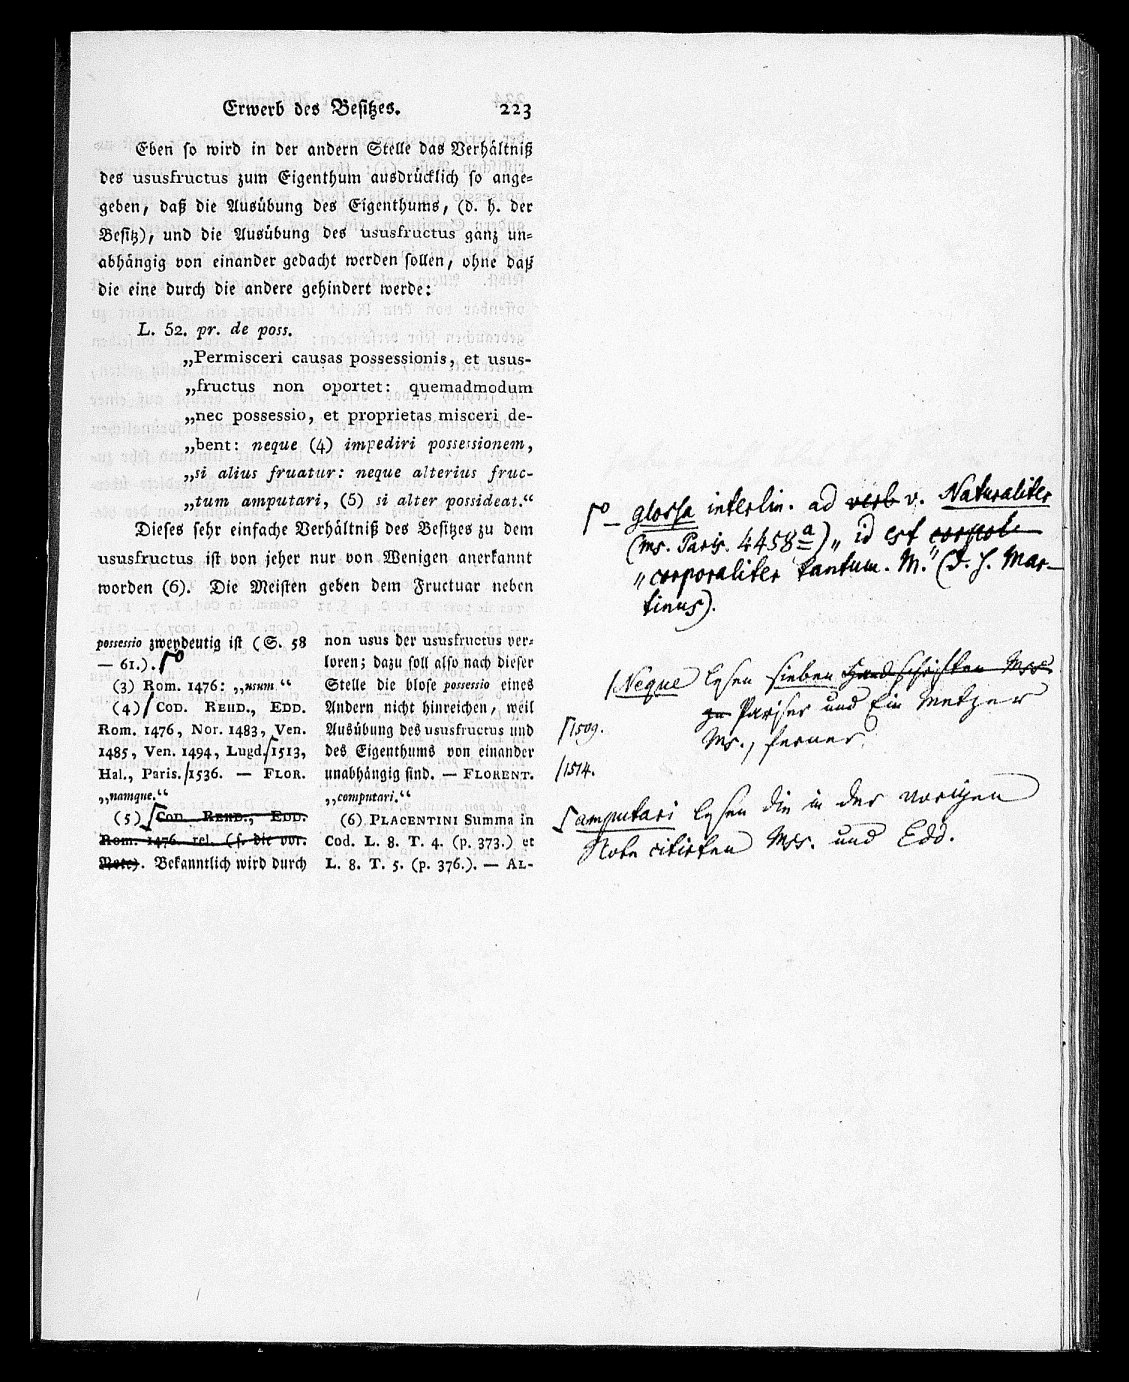 Erwerb des Besitzes. 223
Eben so wird in der andern Stelle das Verhältniß
des ususfructus zum Eigenthum ausdrücklich so ange-
geben, daß die Ausübung des Eigenthums, (d. h. der
Besitz), und die Ausübung des ususfructus ganz un-
abhängig von einander gedacht werden sollen, ohne daß
die eine durch die andere gehindert werde:
L. 52. pr. de poss.
„Permisceri causas possessionis, et usus-
„fructus non oportet: quemadmodum
„nec possessio, et proprietas misceri de-
„bent: neque (4) impediri possessionem,
„si alius fruatur: neque alterius fruc-
„tum amputari, (5) si alter possideat.“
Dieses sehr einfache Verhältniß des Besitzes zu dem
ususfructus ist von jeher nur von Wenigen anerkannt
worden (6). Die Meisten geben dem Fructuar neben
possessio zweydeutig ist (S. 58
— 61.).
(3) Rom. 1476: „usum“
(4) COD. REHD., EDD.
Rom. 1476, Nor. 1483, Ven.
1485, Ven. 1494, Lugd. 1513,
Hal., Paris. 1536. — FLOR.
„namque.“
(5) COD. REHD., EDD.
Rom. 1476. rel. (s. die vor.
Note). Bekanntlich wird durch
non usus der ususfructus ver-
loren; dazu soll also nach dieser
Stelle die blose possessio eines
Andern nicht hinreichen, weil
Ausübung des ususfructus und
des Eigenthums von einander
unabhängig sind. — FLORENT.
„computari.“
(6) PLACENTINI Summa in
Cod. L. 8. T. 4. (p. 373.) et
L. 8. T. 5. (p. 376.). — AL-
glossa interlin. ad verb v. Naturaliter
(ms. Paris. 4458a) „id est corpore
„corporaliter tantum. M.“ (d. h. Mar-
tinus).
Neque lesen sieben Handschriften Mss.
zu Pariser und Ein Metzer
Ms., ferner
1509.
1514.
amputari lesen die in der vorigen
Note citirten Mss. und Edd.